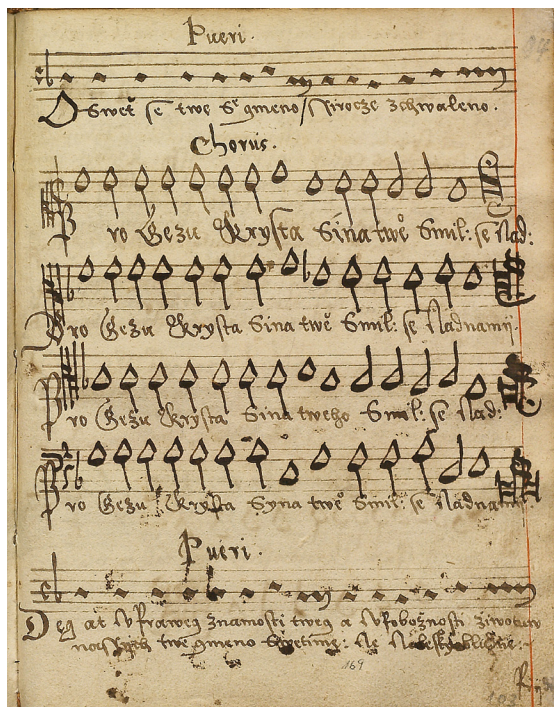 Pueri.
Oswět se twe Sᵉ gmeno / Ssyrocze zchwaleno.
Chorus.
Pro Gezu Krysta Sina tweº Smil: se nad:
Pro Gezu Krysta Sina tweº Smil: se nadnamij.
Pro Gezu Krysta Sina tweho Smil: se nad:
Pro Gezu Krysta Syna tweº Smil: se nadnamij.
Pueri.
Deg at w praweg znamosti tweg a w pobožnosti ziwotuw
nassych twe gmeno Swetime: se
169